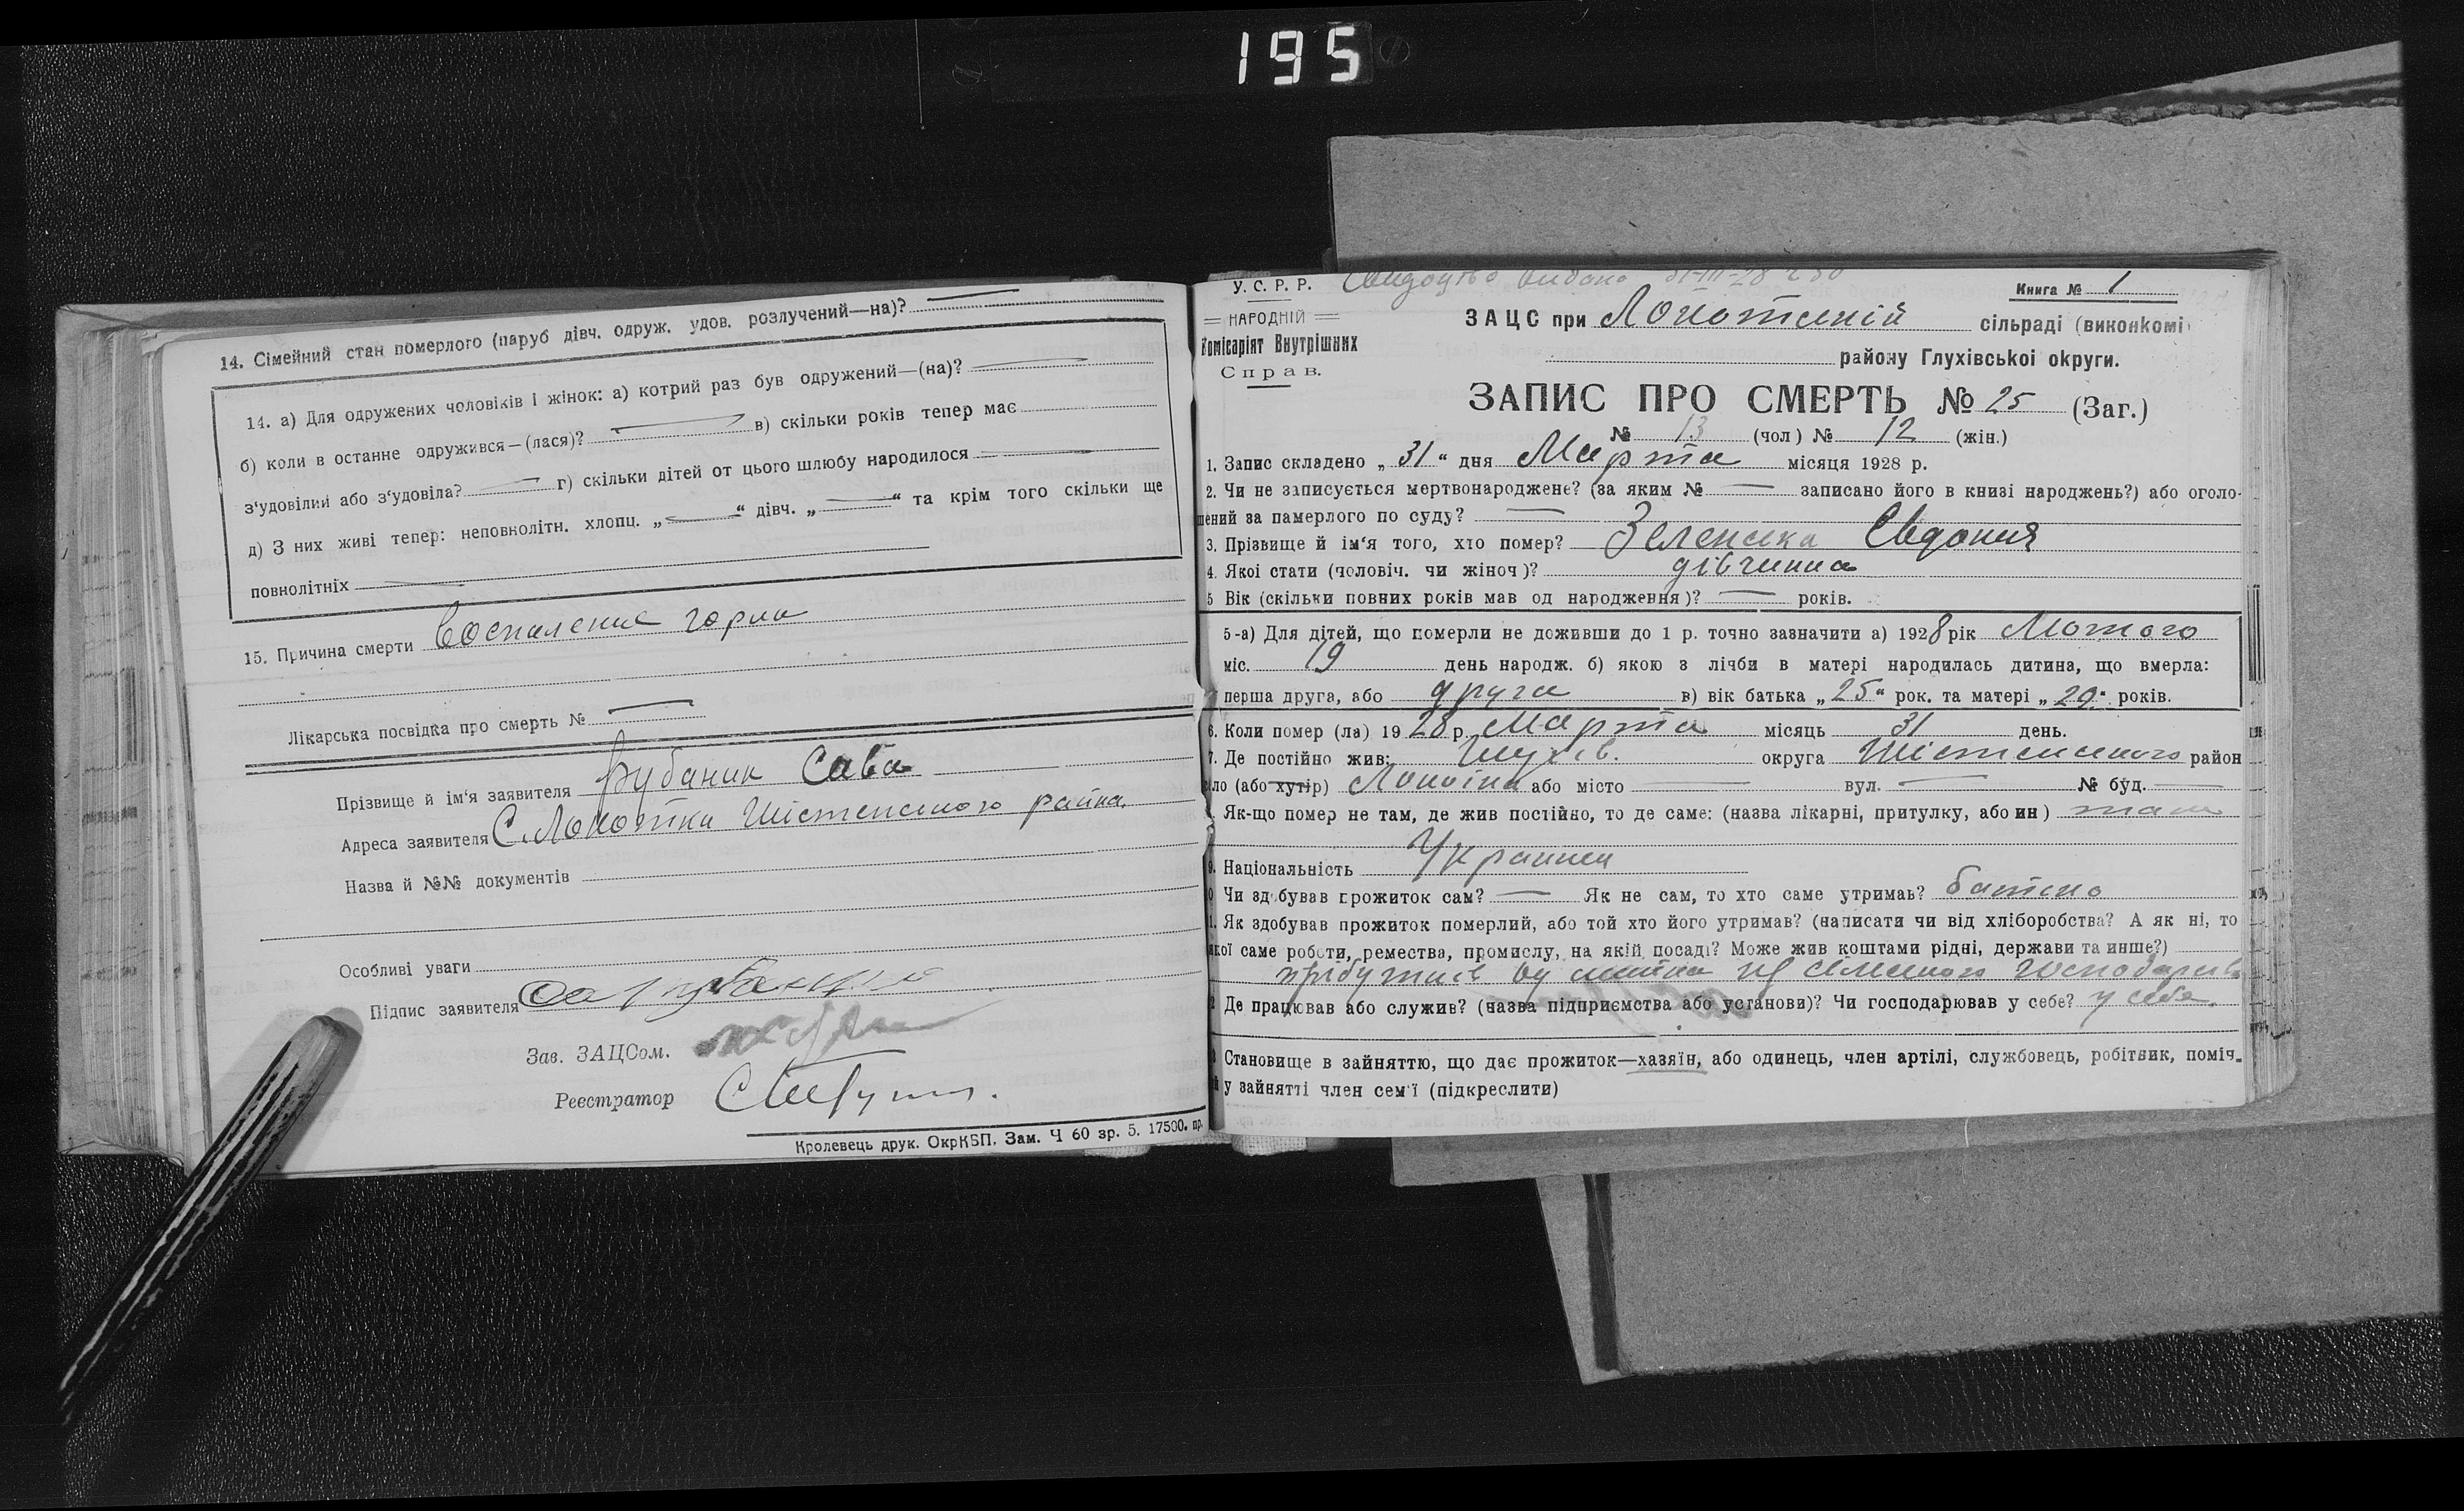 195
14. Сімейний стан померлого (паруб дівч. одруж. удов. розлучений—на)?
14. а) Для одружених чоловіків і жінок: а) котрий раз був одружений—(на)?
б) коли в останне одружився—(лася)? в) скільки років тепер має
з'удовілий або з'удовіла? г) скільки дітей от цього шлюбу народилося
д) З них живі тепер: неповнолітн. хлопц. „ “ дівч. „ “ та крім того скільки ще
повнолітніх
15. Причина смерти Воспаление горла
Лікарська посвідка про смерть №
Прізвище й ім'я заявителя Рубаник Сава
Адреса заявителя С. Локотки Шістенського района.
Назва й №№ документів
Особливі уваги
Підпис заявителя
Зав. ЗАЦСом.
Реєстратор
Кролевець друк. ОкрКБП. Зам. Ч 60 зр. 5. 17500. пр.
У. С. Р. Р.
НАРОДНІЙ
Комісаріят Внутрішних
Справ.
Свидоцтво видано 31-III-28
Книга № 1
ЗАЦС при Локотській сільраді (виконкомі
району Глухівської округи.
ЗАПИС ПРО СМЕРТЬ № 25 (Заг.)
№ 13 (чол) № 12 (жін.)
1. Запис складено „ 31 “ дня Марта місяця 1928 р.
2. Чи не записується мертвонароджене? (за яким № записано його в книзі народжень?) або оголо-
шений за памерлого по суду?
3. Прізвище й ім'я того, хто помер? Зеленська Євдокия
4. Якої стати (чоловіч. чи жіноч)? дівчинка
5 Вік (скільки повних років мав од народження)? років.
5-а) Для дітей, що померли не доживши до 1 р. точно зазначити а) 1928 рік Лютого
міс. 19 день народж. б) якою з лічби в матері народилась дитина, що вмерла:
перша друга, або друга в) вік батька „ 25 “ рок. та матері „ 29 “ років.
6. Коли помер (ла) 1928 р. Марта місяць 31 день.
7. Де постійно жив: Глухів. округа Шістенського район
ло (або хутір) Локотка або місто вул. № буд.
Як-що помер не там, де жив постійно, то де саме: (назва лікарні, притулку, або ин) там
9. Національність Украинец
0 Чи здобував прожиток сам? Як не сам, то хто саме утримав? батько
1. Як здобував прожиток померлий, або той хто його утримав? (написати чи від хліборобства? А як ні, то
якої саме роботи, ремества, промислу, на якій посаді? Може жив коштами рідні, держави та инше?)
2 Де працював або служив? (назва підприємства або установи)? Чи господарював у себе? у себе.
3 Становище в зайняттю, що дає прожиток—хазяїн, або одинець, член артілі, службовець, робітник, поміч-
й у зайнятті член сем'ї (підкреслити)